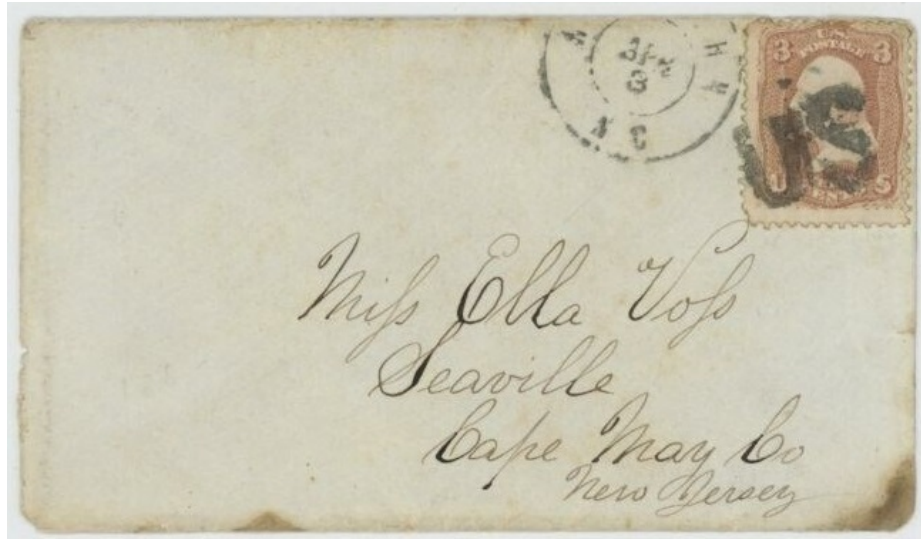 APR
3
N C
U.S.
POSTAGE
3 3
Miſs Ella Voſs
Seaville
Cape May Co
New Jersey